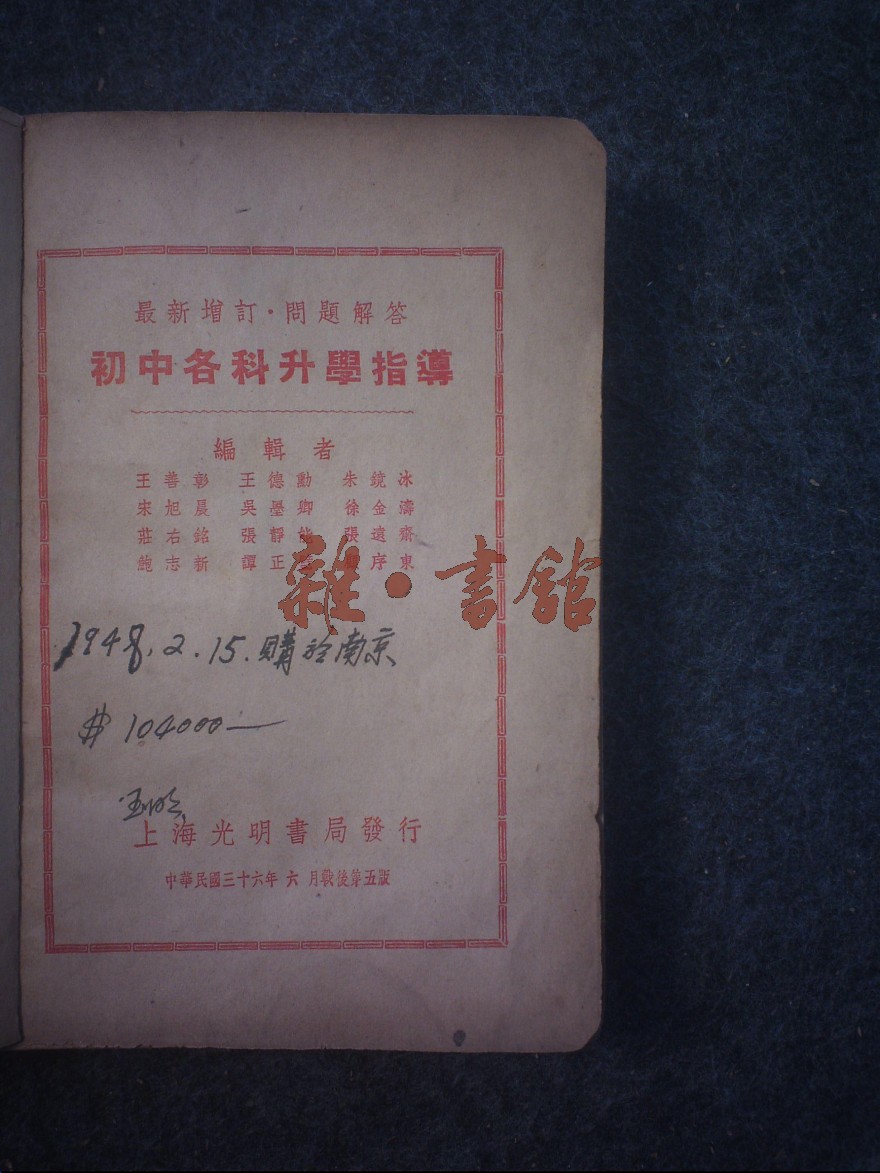 最新增訂·問題解答
初中各科升學指導
編輯者
王善彰 王德勳 朱鏡冰
宋旭晨 吳墨卿 徐金濤
莊右銘 張靜 張遠齋
鮑志新 譚正 序東
雜·書館
1948.2.15.購於南京
$ 104000—
上海光明書局發行
中華民國三十六年六月戰後第五版